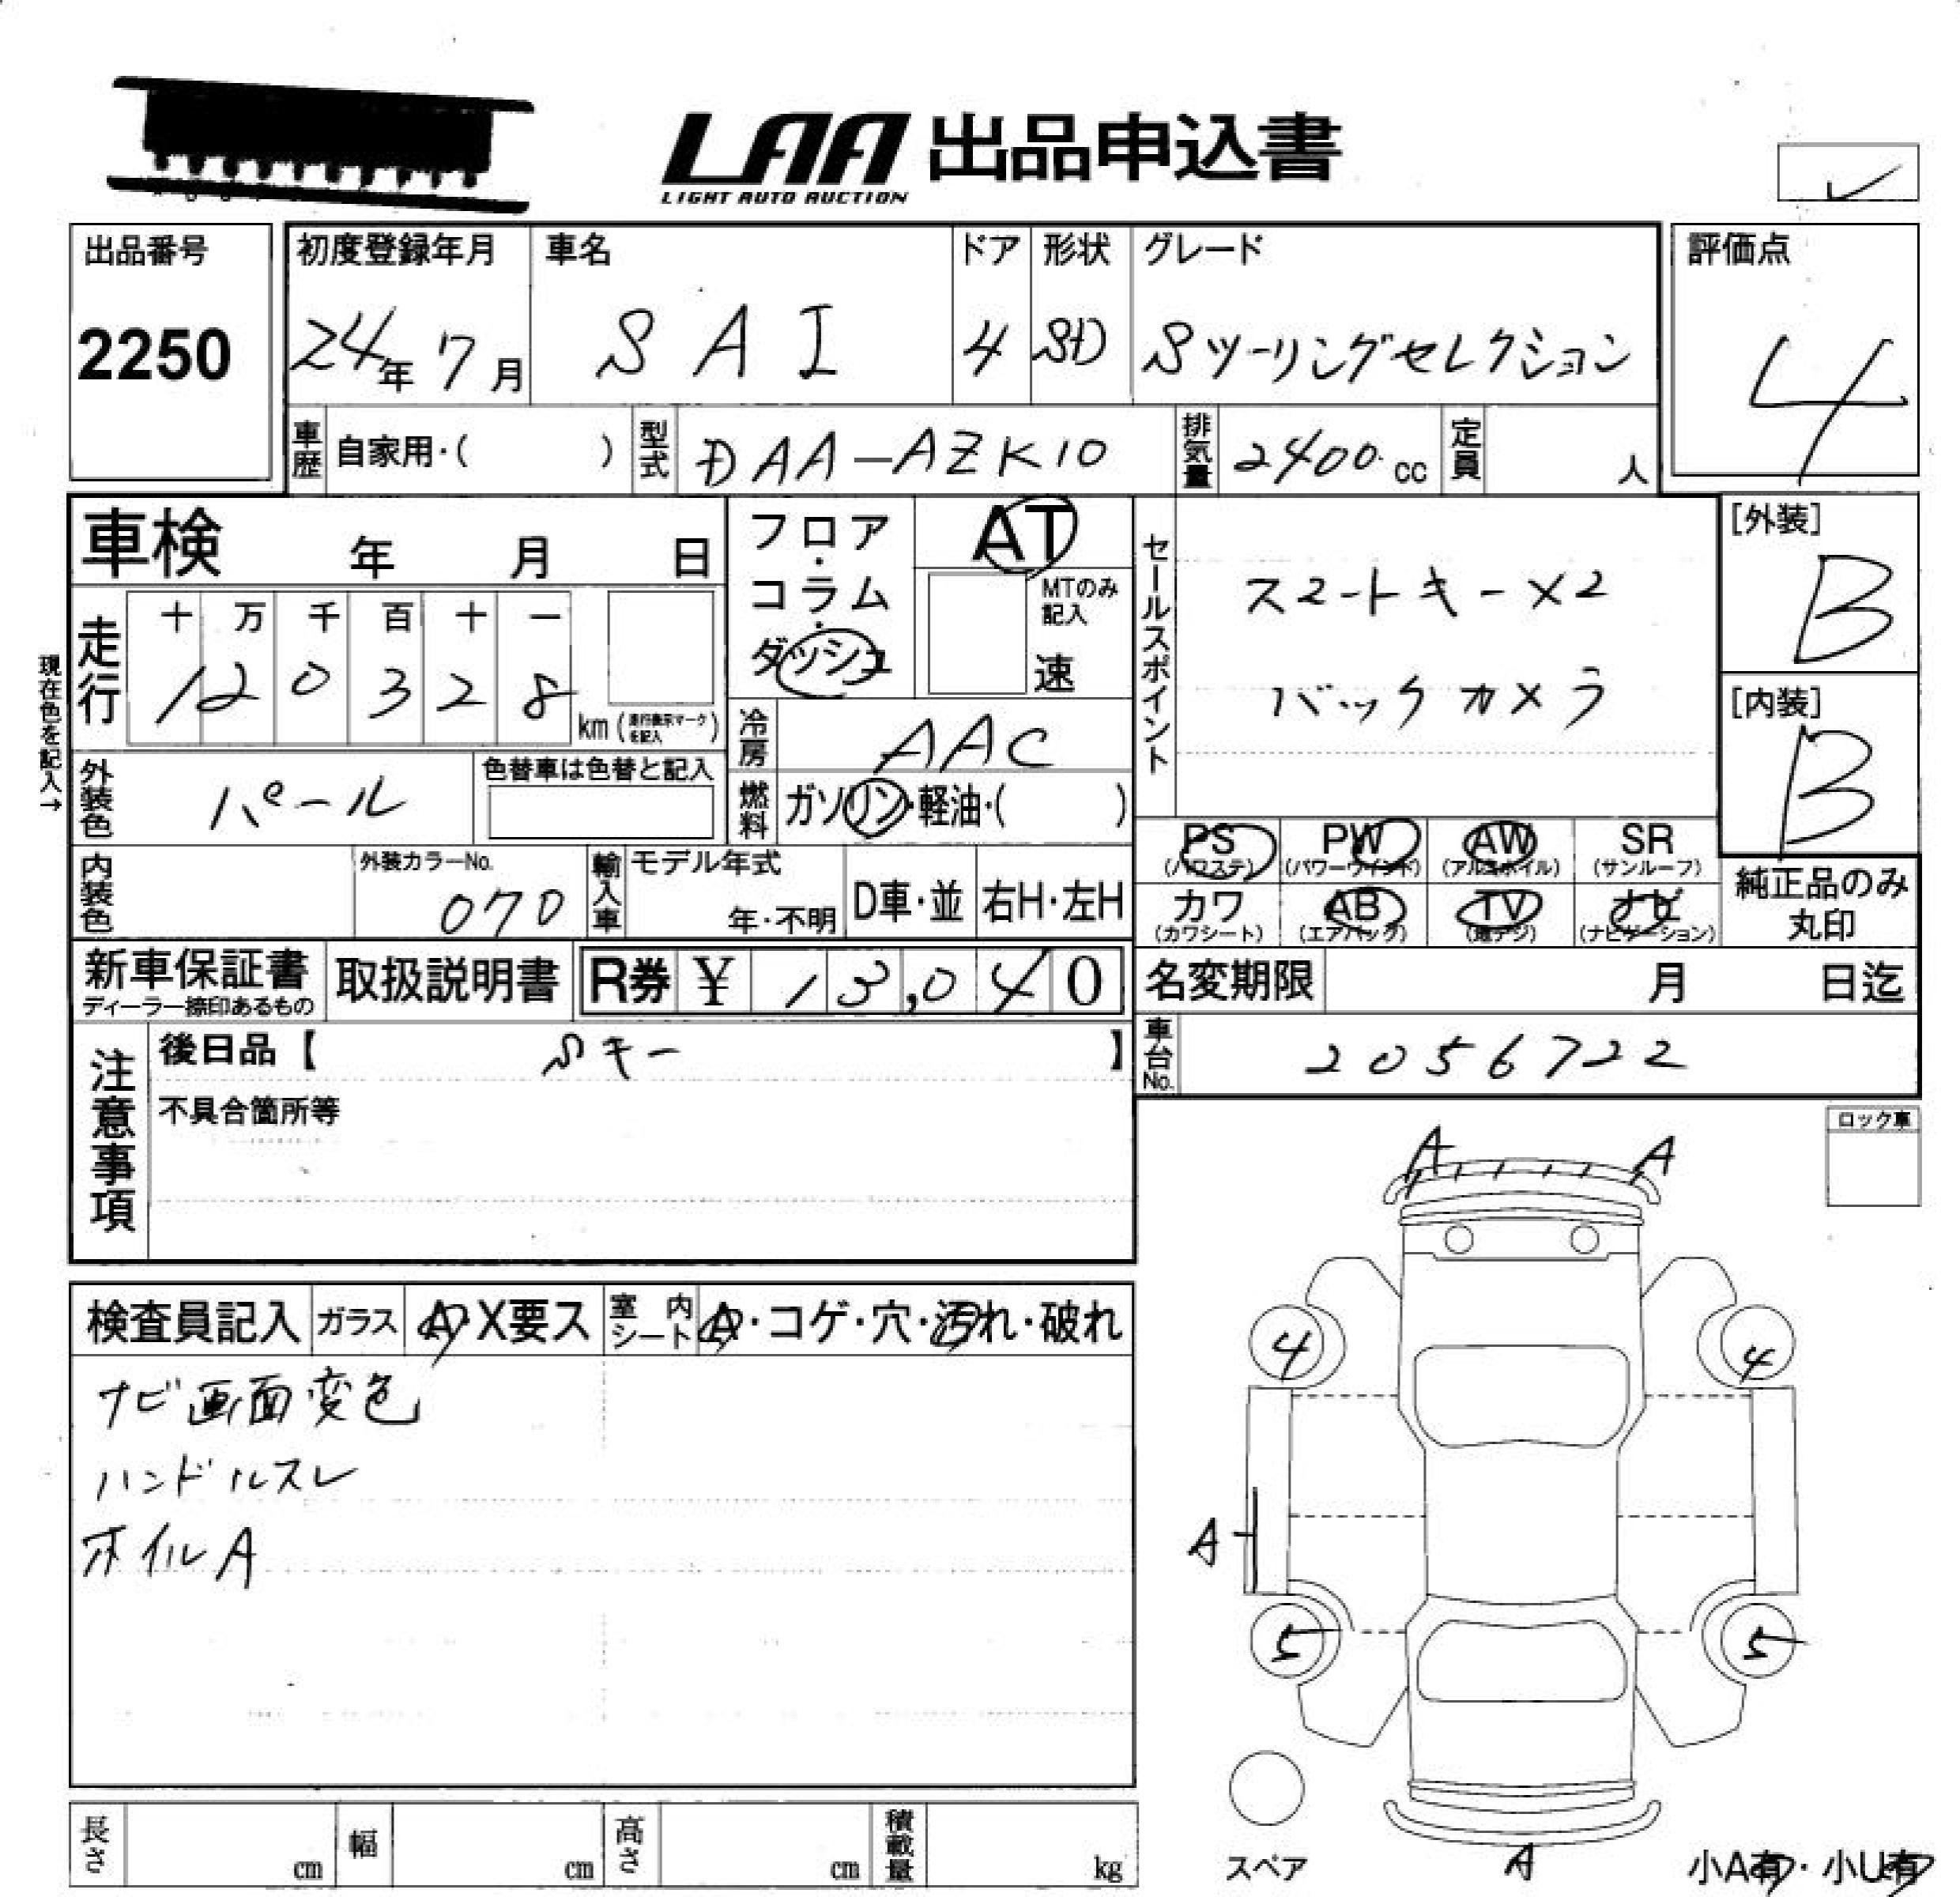 LAA 出品申込書
LIGHT AUTO AUCTION
出品番号
2250
初度登録年月
24年 7月
車名
SAI
ドア
4
形状
SD
グレード
Sツーリングセレクション
評価点
4
車歴 自家用・( )
型式 DAA-AZK10
排気量 2400 cc
定員 人
車検 年 月 日
フロア・コラム・ダッシュ
AT
MTのみ記入
速
セールスポイント
スマートキー×2
バックカメラ
[外装]
B
[内装]
B
現在色を記入→
走行
十 万 千 百 十 一
1 2 0 3 2 8
km (走行表示マークを記入)
冷房 AAC
外装色 パール
色替車は色替と記入
燃料 ガソリン・軽油・( )
PS PW AW SR
(パワステ) (パワーウインド) (アルミホイル) (サンルーフ)
カワ AB TV ナビ
(カワシート) (エアバック) (地デジ) (ナビゲーション)
純正品のみ
丸印
内装色
外装カラーNo.
070
輸入車
モデル年式
年・不明
D車・並
右H・左H
新車保証書
ディーラー捺印あるもの
取扱説明書
R券 ¥ 13,040
名変期限 月 日迄
車台No. 2056722
注意事項
後日品【 Sキー 】
不具合箇所等
ロック車
A A
検査員記入
ガラス A・X要ス
室内シート A・コゲ・穴・汚れ・破れ
ナビ画面変色
ハンドルスレ
ホイルA
4 4
A
5 5
スペア
A
小A有・小U有
長さ cm
幅 cm
高さ cm
積載量 kg